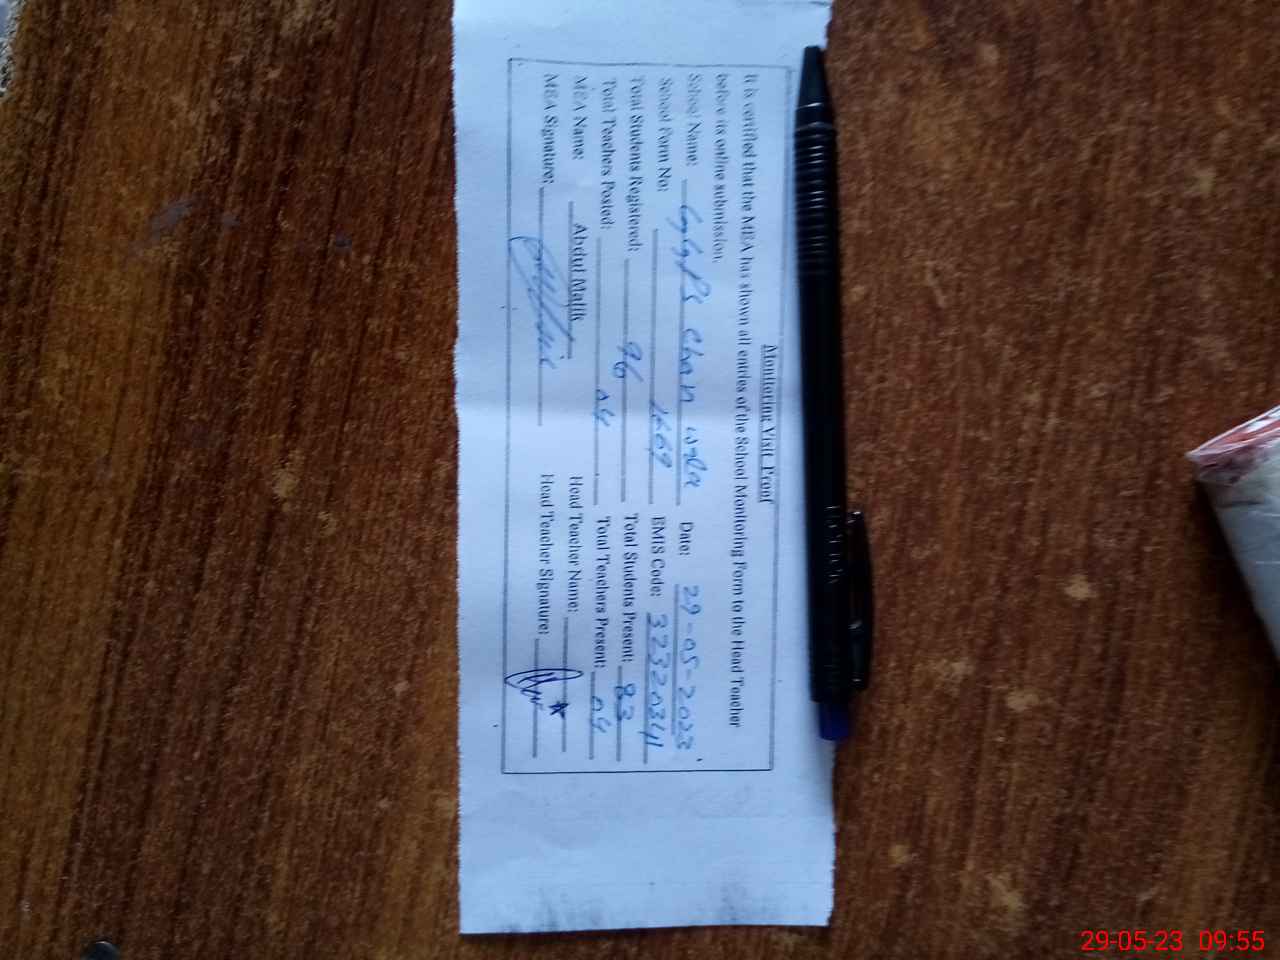 Monitoring Visit Proof
It is certified that the MEA has shown all entries of the School Monitoring Form to the Head Teacher
before its online submission.
School Name: GGPS Chan wala Date: 29-05-2023
School Form No: 1669 EMIS Code: 32320341
Total Students Registered: 96 Total Students Present: 83
Total Teachers Posted: 04 Total Teachers Present: 04
MEA Name: Abdul Malik Head Teacher Name:
MEA Signature: Head Teacher Signature:
29-05-23 09:55